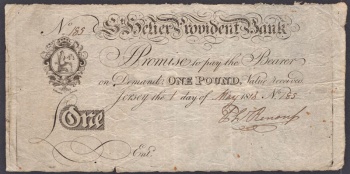 No. 185 St. Helier Provident Bank
I Promise to pay the Bearer
on Demand, ONE POUND, Value received
Jersey the 1 day of May 1818 No. 185
One
Entd.